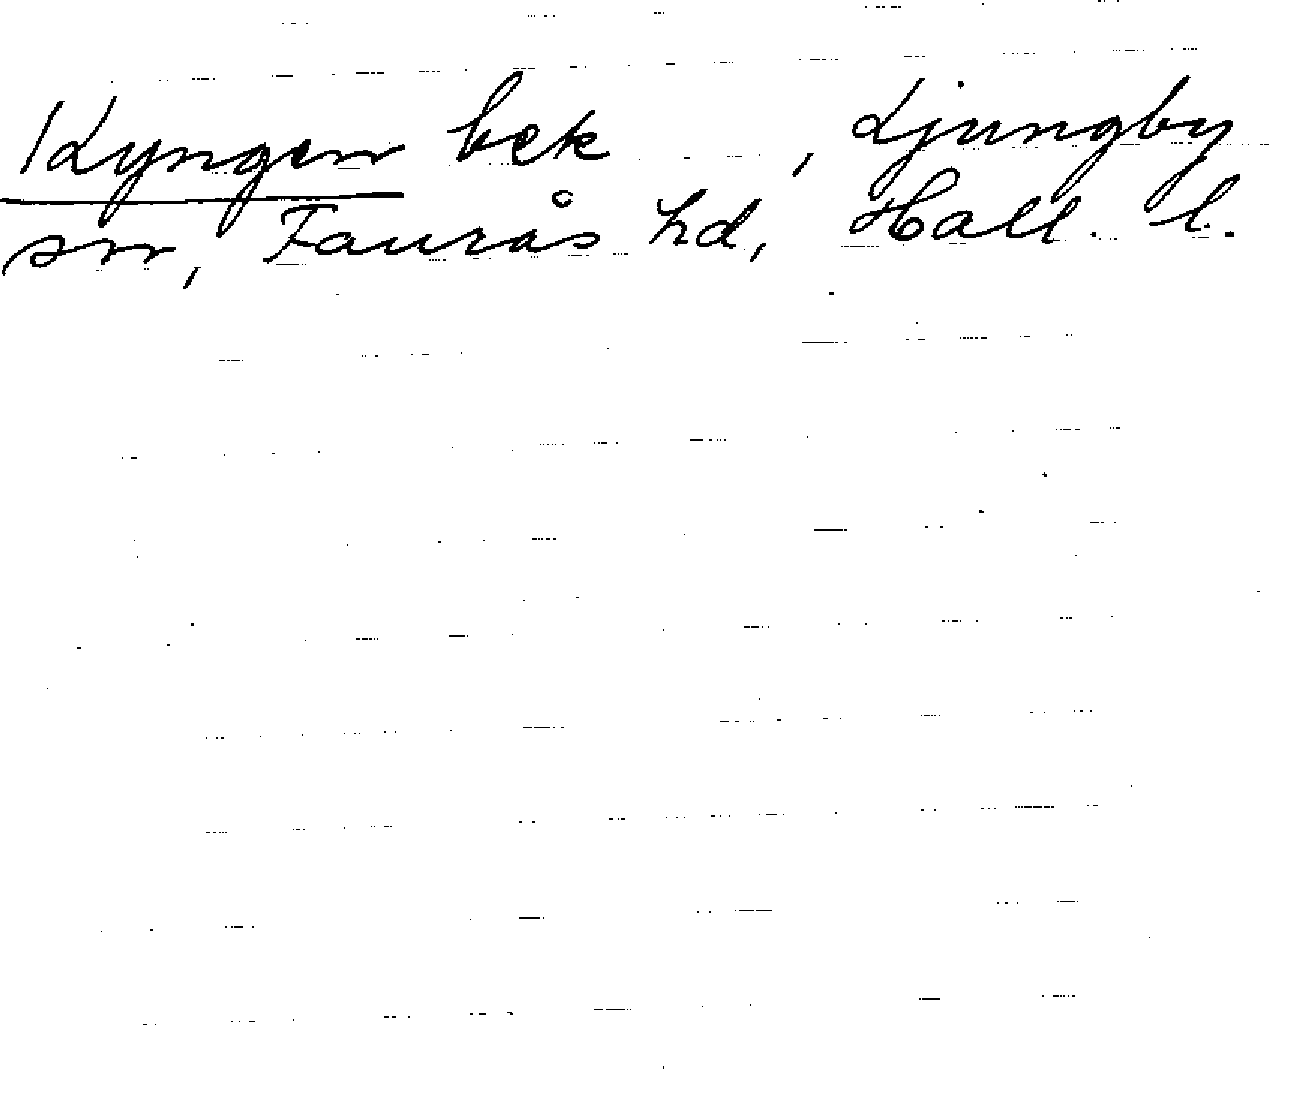 Kyngen bek , Ljungby
sn, Faurås hd, Hall. l.